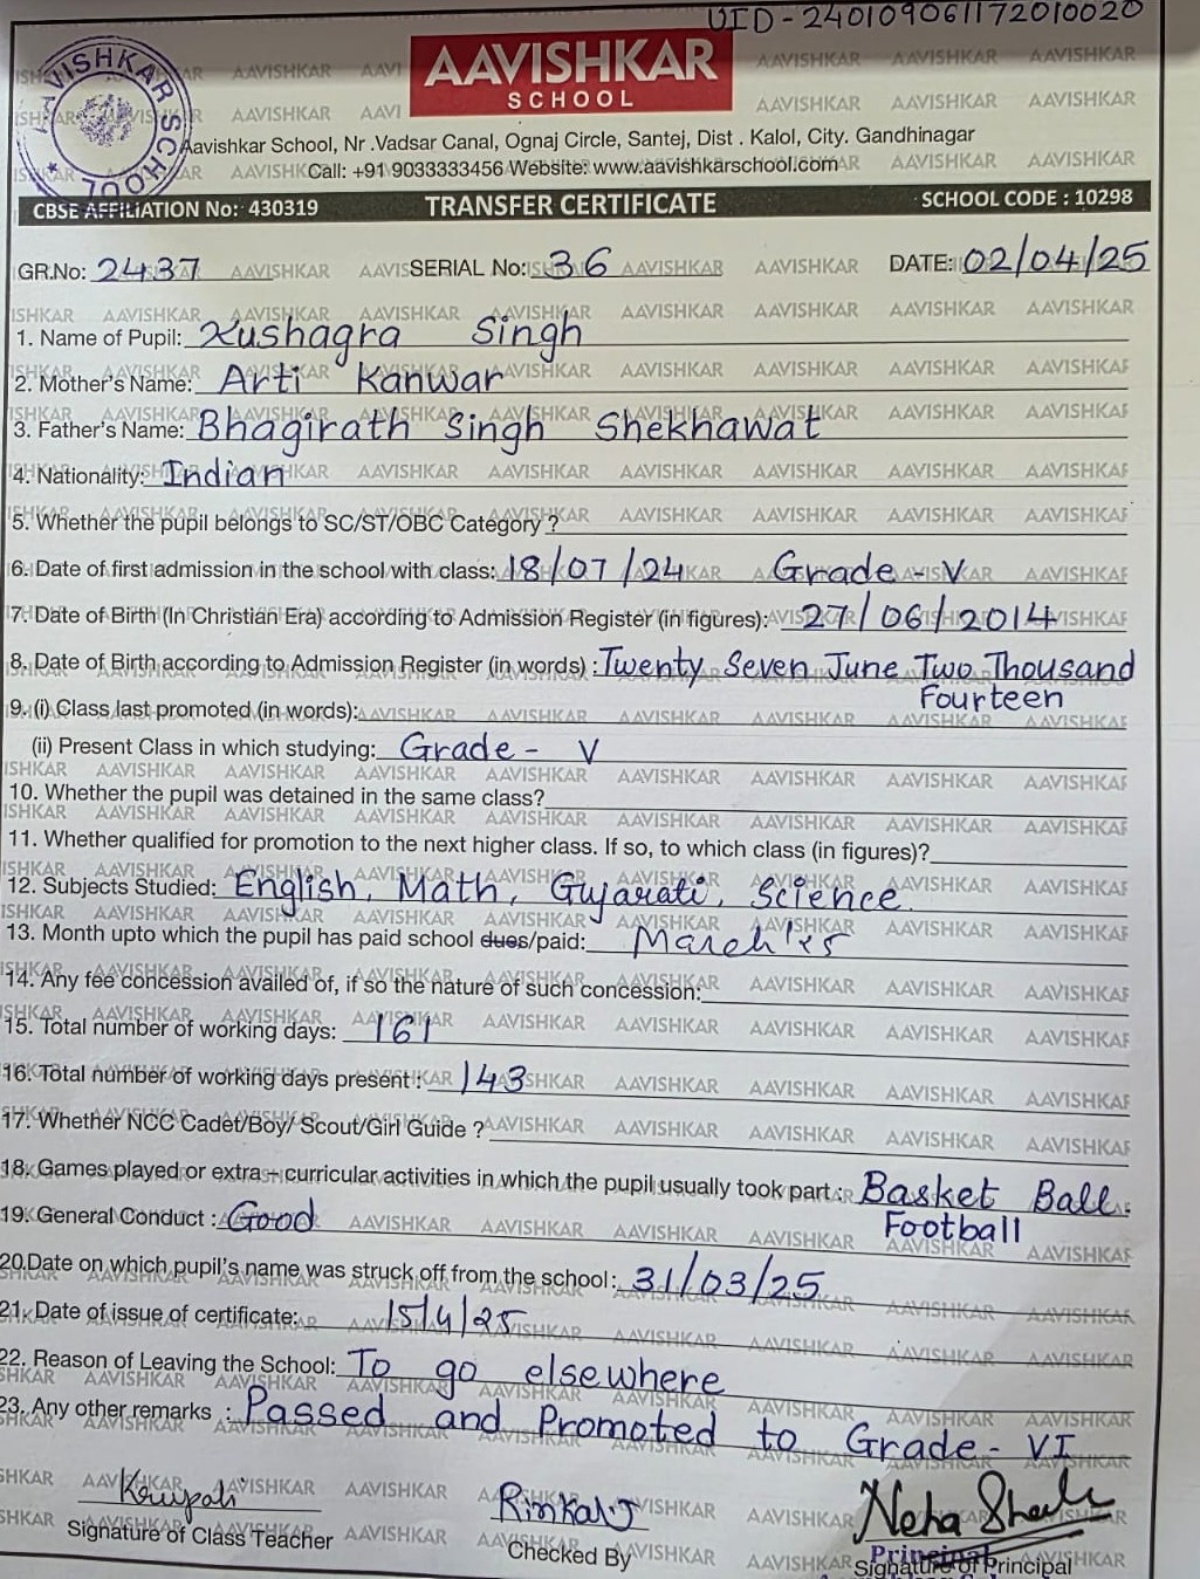 UID-240109061172010020
AAVISHKAR SCHOOL
AAVISHKAR
SCHOOL
Aavishkar School, Nr .Vadsar Canal, Ognaj Circle, Santej, Dist . Kalol, City. Gandhinagar
Call: +91 9033333456 Website: www.aavishkarschool.com
CBSE AFFILIATION No: 430319 TRANSFER CERTIFICATE SCHOOL CODE : 10298
GR.No: 2437 SERIAL No: 36 DATE: 02/04/25
1. Name of Pupil: Kushagra Singh
2. Mother's Name: Arti Kanwar
3. Father's Name: Bhagirath Singh Shekhawat
4. Nationality: Indian
5. Whether the pupil belongs to SC/ST/OBC Category ?
6. Date of first admission in the school with class: 18/07/24 Grade-V
7. Date of Birth (In Christian Era) according to Admission Register (in figures): 27/06/2014
8. Date of Birth according to Admission Register (in words) : Twenty Seven June Two Thousand
Fourteen
9. (i) Class last promoted (in words):
(ii) Present Class in which studying: Grade - V
10. Whether the pupil was detained in the same class?
11. Whether qualified for promotion to the next higher class. If so, to which class (in figures)?
12. Subjects Studied: English, Math, Gujarati, Science.
13. Month upto which the pupil has paid school dues/paid: March'25
14. Any fee concession availed of, if so the nature of such concession:
15. Total number of working days: 161
16. Total number of working days present : 143
17. Whether NCC Cadet/Boy/ Scout/Girl Guide ?
18. Games played or extra – curricular activities in which the pupil usually took part : Basket Ball.
19. General Conduct : Good Football
20.Date on which pupil's name was struck off from the school: 31/03/25
21. Date of issue of certificate: 15/4/25
22. Reason of Leaving the School: To go elsewhere
23. Any other remarks : Passed and Promoted to Grade - VI
Krupali Rinkal.J Neha Sheth
Signature of Class Teacher Checked By Signature of Principal
Principal